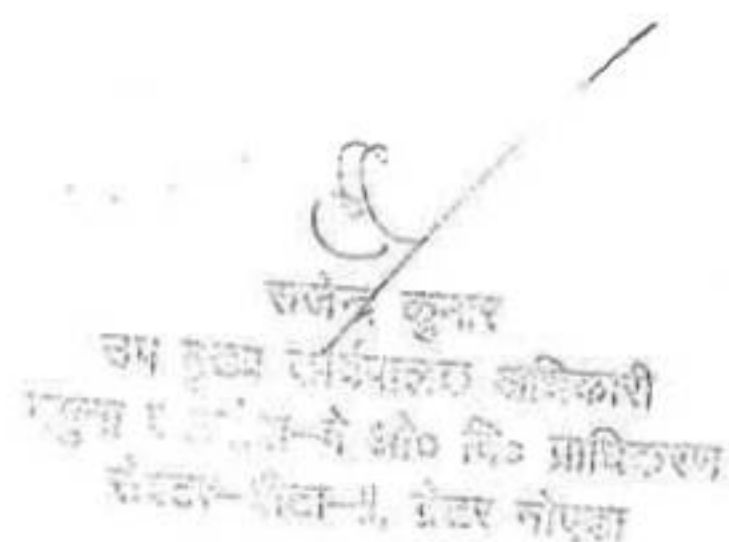 राजेन्द्र कुमार
उप मुख्य कार्यपालक अधिकारी
औ० वि० प्राधिकरण
सेक्टर-बीटा-II, ग्रेटर नोएडा